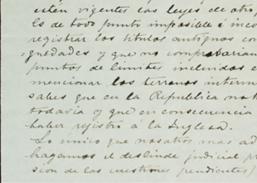 estén vigentes las leyes de otro
es de todo punto imposible é inco
registrar los títulos antiguos con
güedades y que no comprobarían
puntos de límites incluidos e
mencionar los terrenos interm
sabes que en la Republica no h
todavía y que en consecuencia
haber registro a la Inglesa.
Lo unico que nosotros mas ad
hagamos el deslinde judicial pr
sion de las cuestiones pendientes